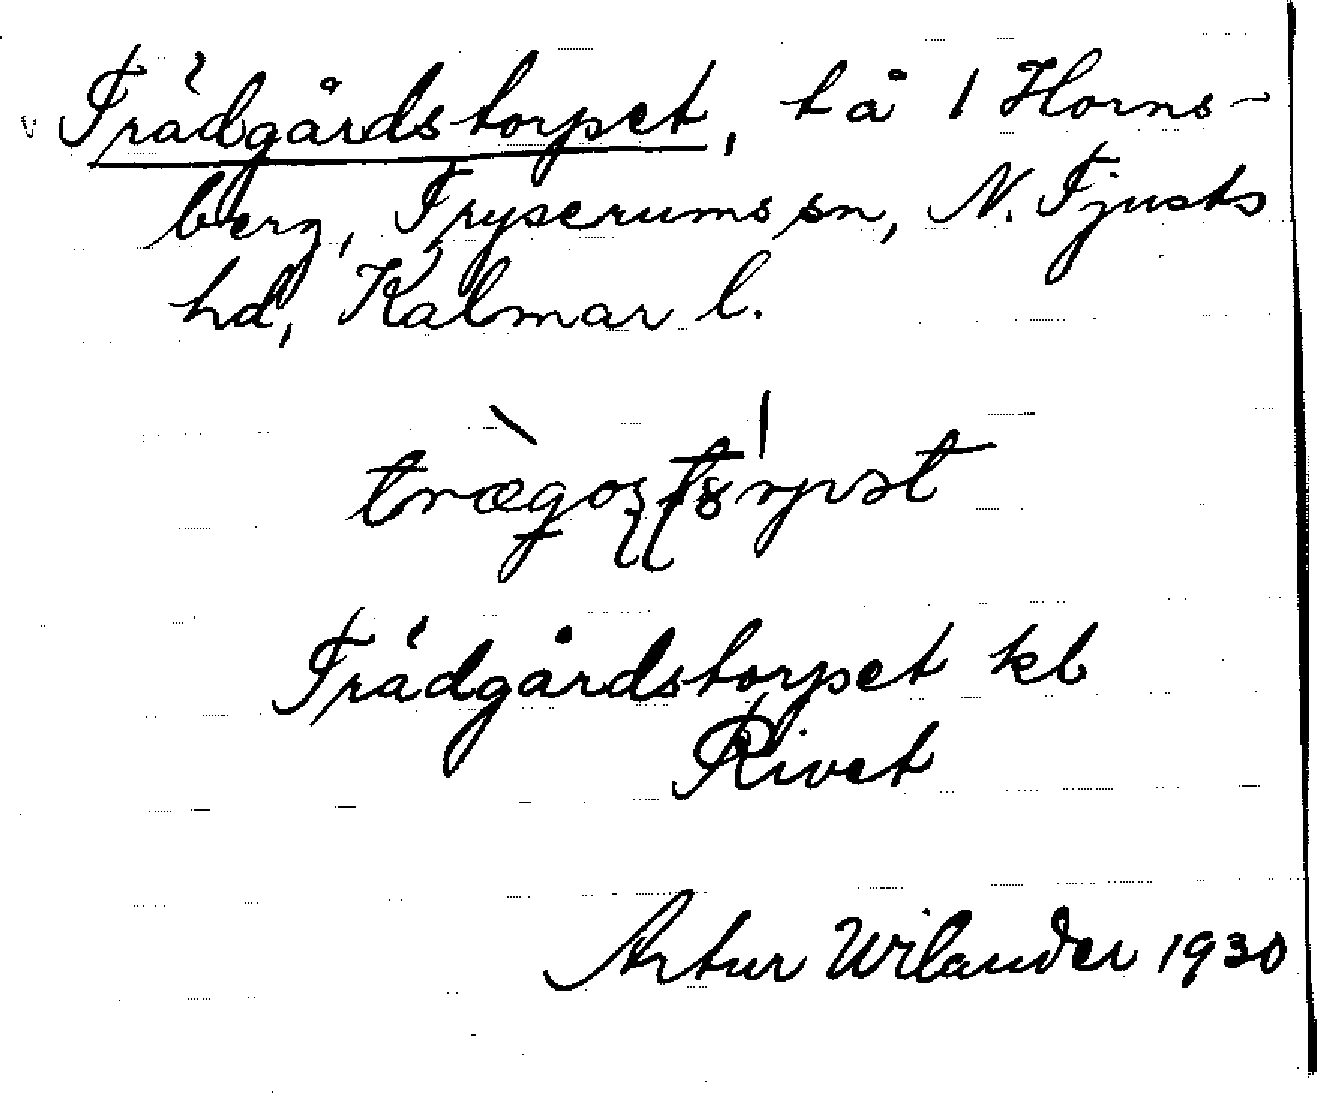 Trädgårdstorpet, t å 1 Horns-
berg, Tryserums sn, N. Tjusts
hd, Kalmar l.
Trädgårdstorpet kb
Rivet
Artur Wilander 1930